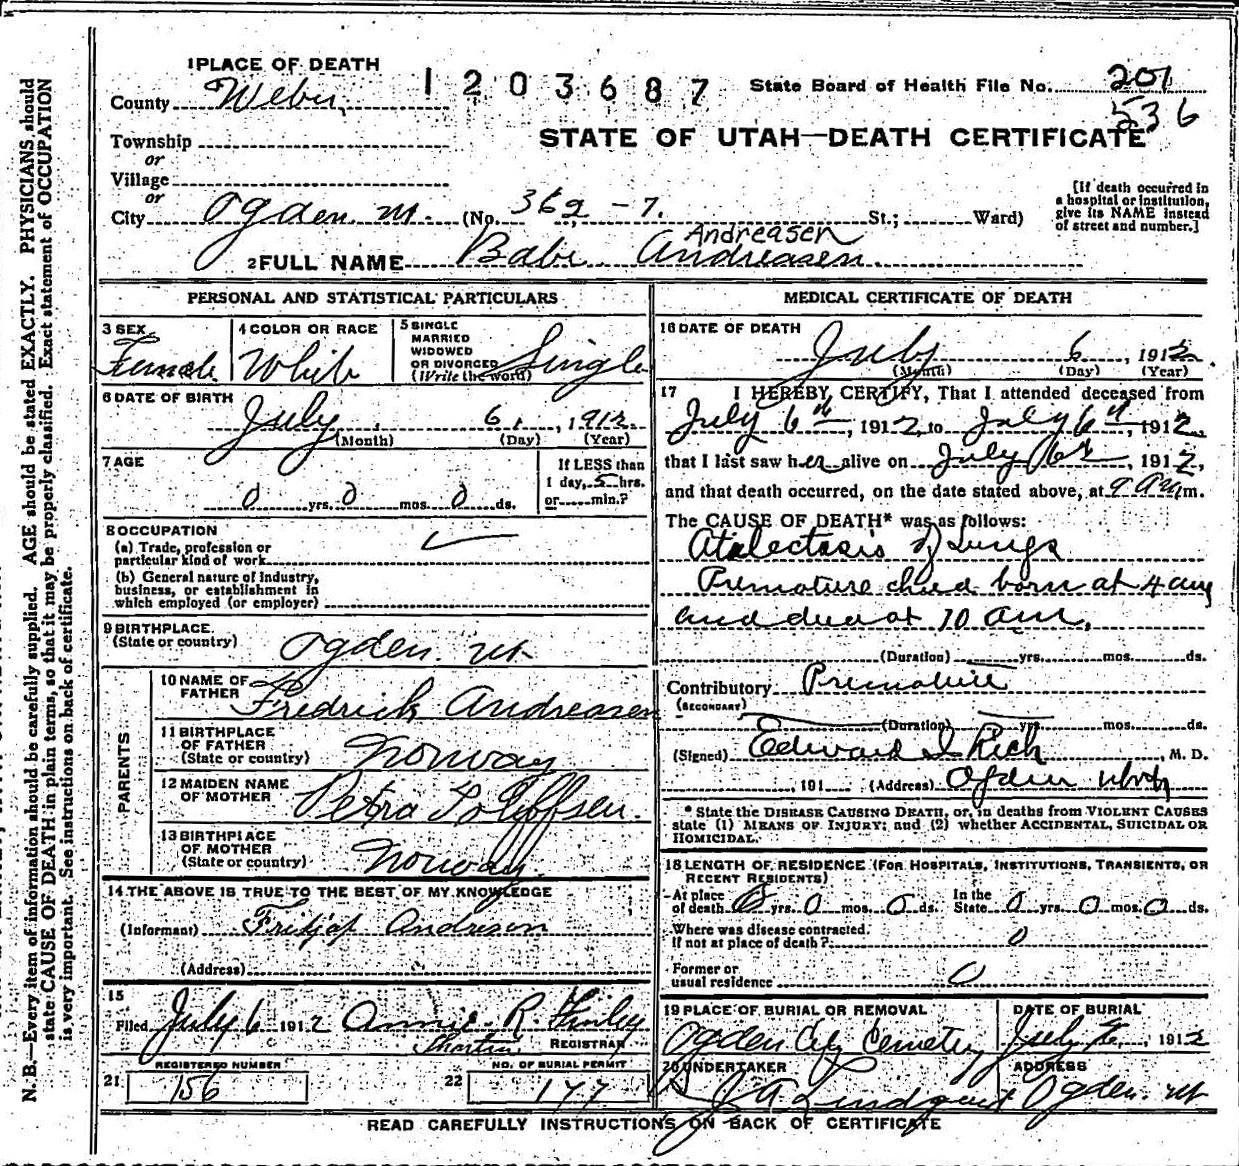 1 PLACE OF DEATH
1203687
State Board of Health File No. 201
536
County Weber
STATE OF UTAH—DEATH CERTIFICATE
Township
or
Village
or
City Ogden (No. 362 - 7. St.; Ward)
[If death occurred in
a hospital or institution,
give its NAME instead
of street and number.]
Andreasen
2 FULL NAME Babe Andreasen
PERSONAL AND STATISTICAL PARTICULARS
3 SEX
Female
4 COLOR OR RACE
White
5 SINGLE
MARRIED
WIDOWED
OR DIVORCED
(Write the word)
Single
6 DATE OF BIRTH
July 6, 1912
(Month) (Day) (Year)
7 AGE
0 yrs. 0 mos. 0 ds.
If LESS than
1 day, 5 hrs.
or min.?
8 OCCUPATION
(a) Trade, profession or
particular kind of work
(b) General nature of Industry,
business, or establishment in
which employed (or employer)
9 BIRTHPLACE
(State or country)
Ogden. Ut
PARENTS
10 NAME OF
FATHER
Fredrick Andreasen
11 BIRTHPLACE
OF FATHER
(State or country)
Norway
12 MAIDEN NAME
OF MOTHER
Petra
13 BIRTHPLACE
OF MOTHER
(State or country)
Norway
14 THE ABOVE IS TRUE TO THE BEST OF MY KNOWLEDGE
(Informant) Andresen
(Address)
15
Filed July 6 1912 Annie R. Finley
REGISTRAR
REGISTERED NUMBER
21 156
NO. OF BURIAL PERMIT
22 177
MEDICAL CERTIFICATE OF DEATH
16 DATE OF DEATH
July 6, 1912.
(Month) (Day) (Year)
17 I HEREBY CERTIFY, That I attended deceased from
July 6th, 1912, to July 6th, 1912,
that I last saw her alive on July 6th, 1912,
and that death occurred, on the date stated above, at 9 am m.
The CAUSE OF DEATH* was as follows:
Atalectasis of Lungs
Premature child born at 4 am
and died at 10 am,
(Duration) yrs. mos. ds.
Contributory Premature
(SECONDARY)
(Duration) yrs. mos. ds.
(Signed) Edward I Rich M. D.
, 191 (Address) Ogden Utah
* State the DISEASE CAUSING DEATH, or, in deaths from VIOLENT CAUSES
state (1) MEANS OF INJURY; and (2) whether ACCIDENTAL, SUICIDAL OR
HOMICIDAL.
18 LENGTH OF RESIDENCE (FOR HOSPITALS, INSTITUTIONS, TRANSIENTS, OR
RECENT RESIDENTS)
At place
of death 0 yrs. 0 mos. 0 ds.
In the
State 0 yrs. 0 mos. 0 ds.
Where was disease contracted.
If not at place of death? 0
Former or
usual residence 0
19 PLACE OF BURIAL OR REMOVAL
Ogden City Cemetery
DATE OF BURIAL
July 6, 1912
20 UNDERTAKER
J A Lindquist
ADDRESS
Ogden. Ut
READ CAREFULLY INSTRUCTIONS ON BACK OF CERTIFICATE
N. B.—Every item of information should be carefully supplied. AGE should be stated EXACTLY. PHYSICIANS should
state CAUSE OF DEATH in plain terms, so that it may be properly classified. Exact statement of OCCUPATION
is very important. See instructions on back of certificate.